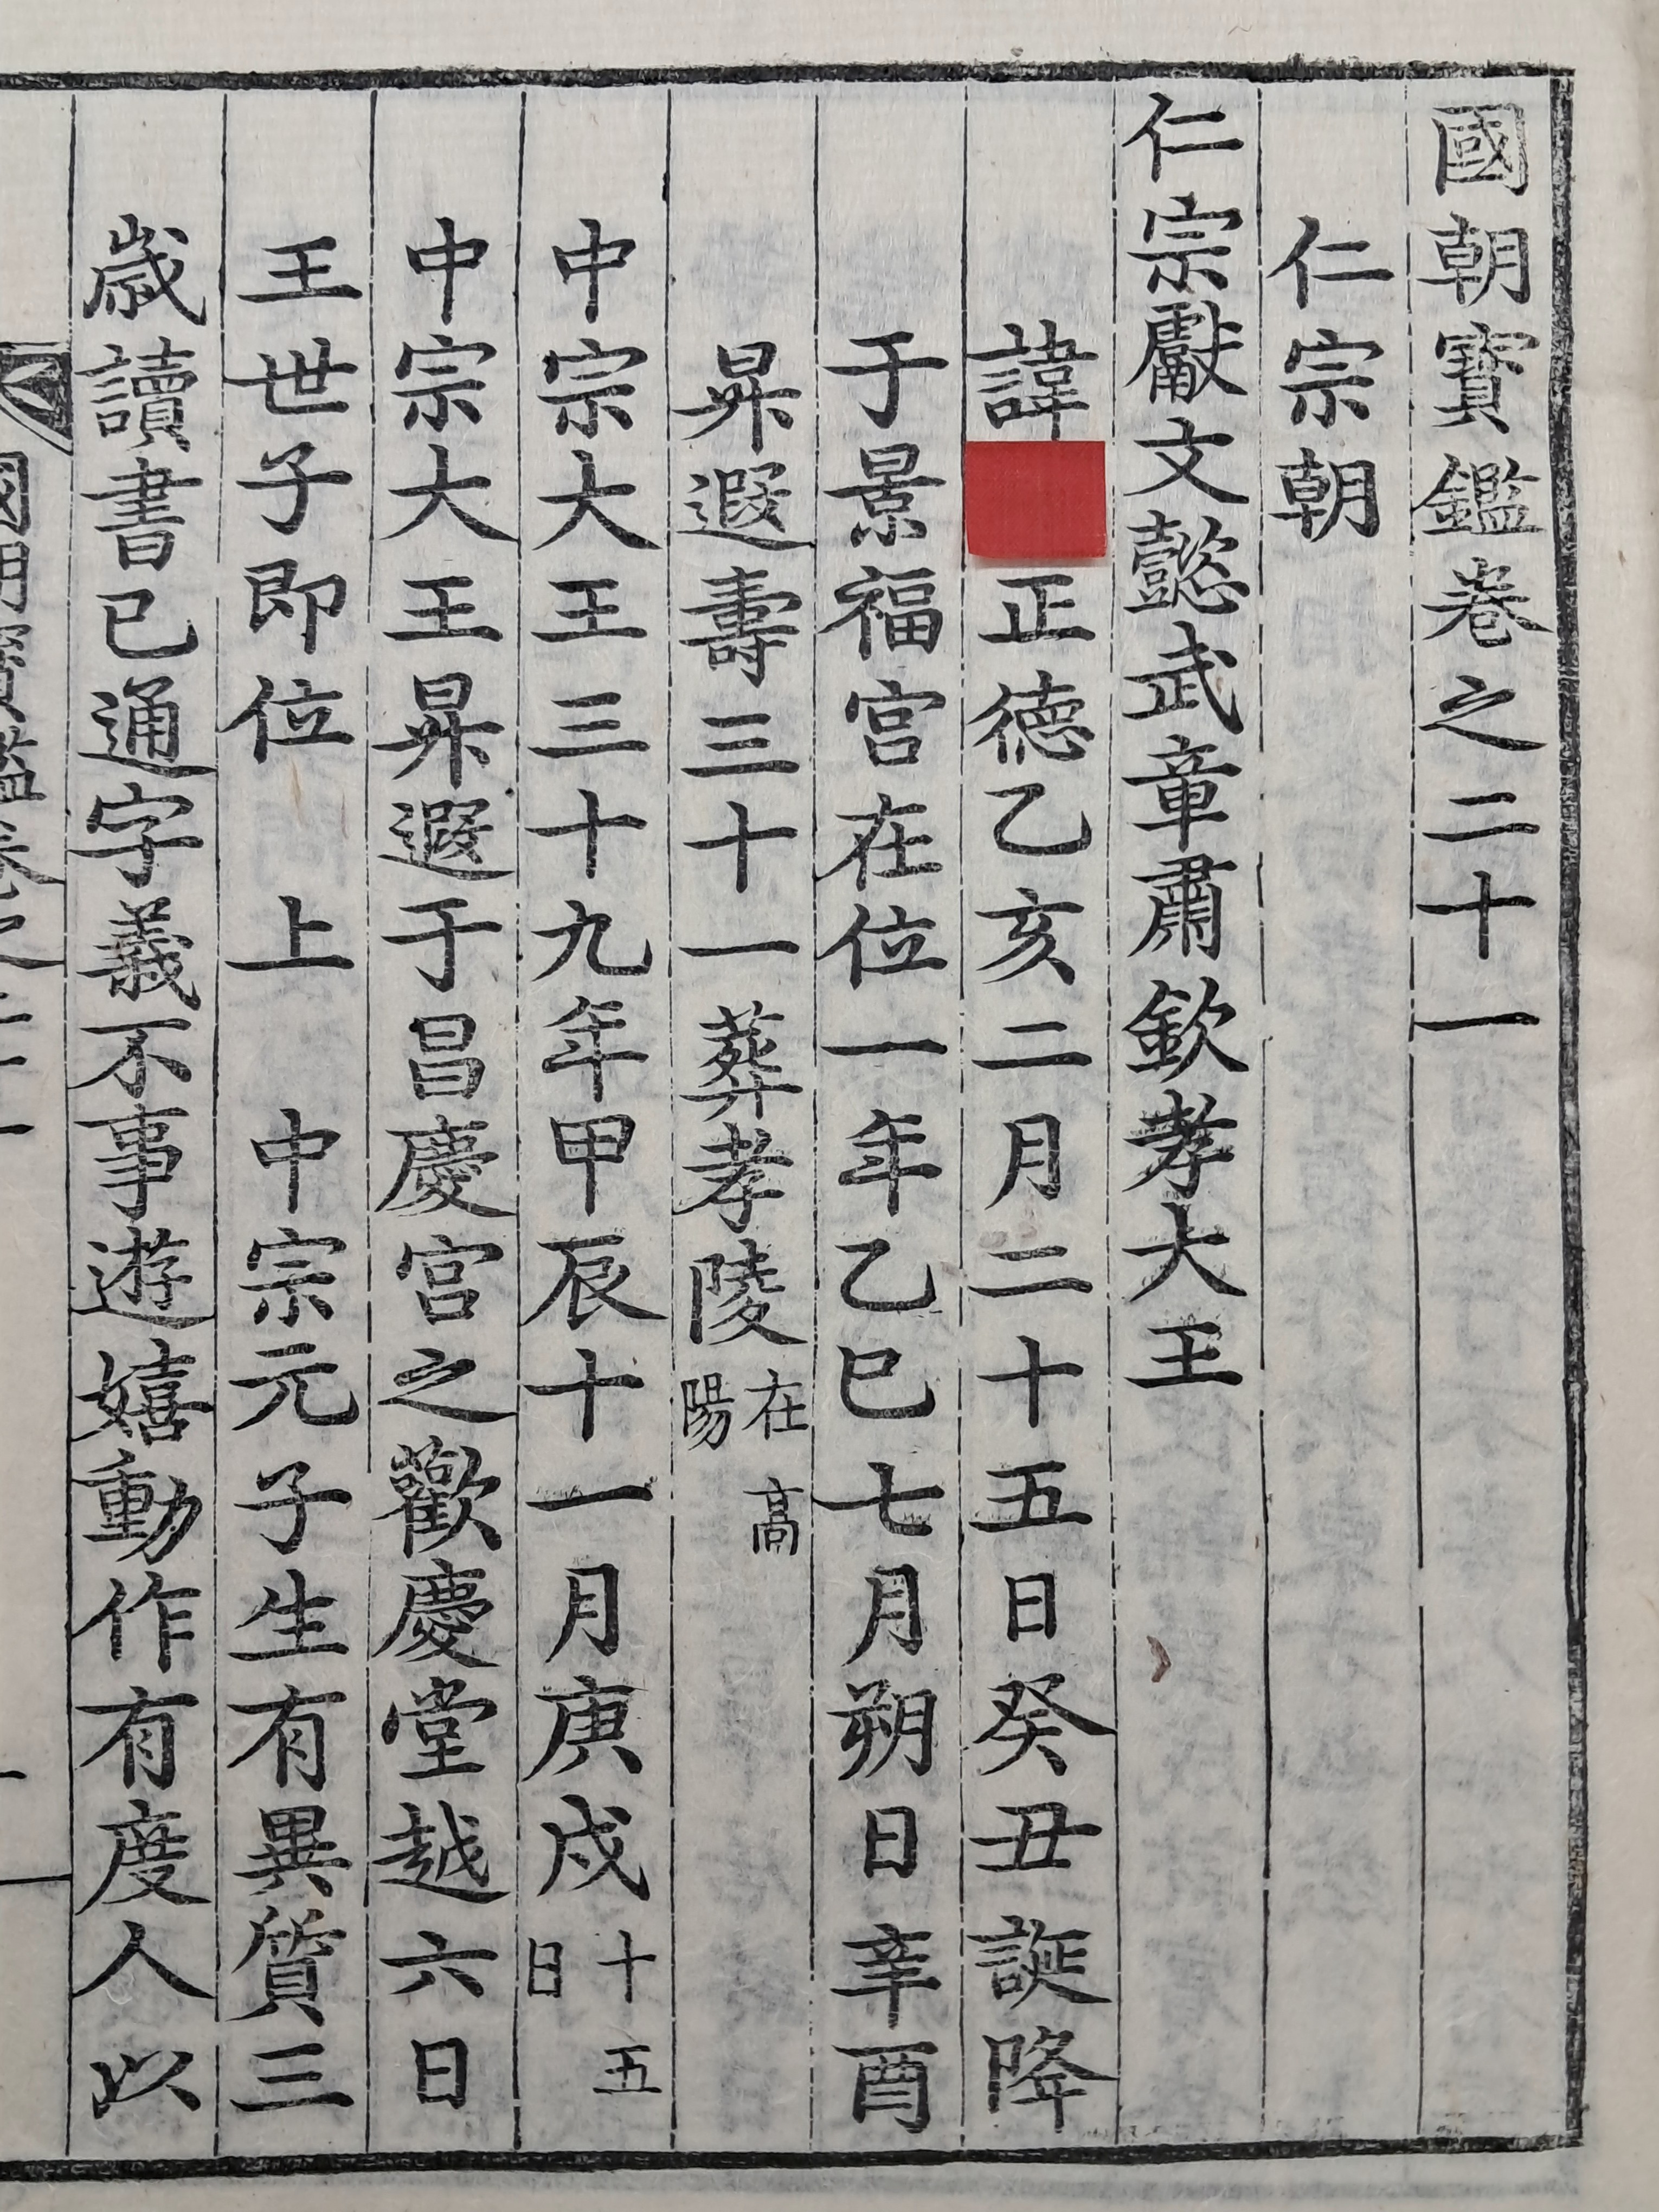 國朝寶鑑卷之二十一
仁宗朝
仁宗獻文懿武章肅欽孝大王
諱 正德乙亥二月二十五日癸丑誕降
于景福宮在位一年乙巳七月朔日辛酉
昇遐壽三十一葬孝陵在高陽
中宗大王三十九年甲辰十一月庚戌十五日
中宗大王昇遐于昌慶宮之歡慶堂越六日
王世子即位 上 中宗元子生有異質三
歲讀書已通字義不事遊嬉動作有度人以
國朝寶鑑卷之二十一